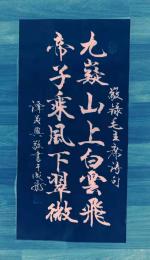 敬錄毛主席詩句
九嶷山上白雲飛
帝子乘風下翠微
敬書于